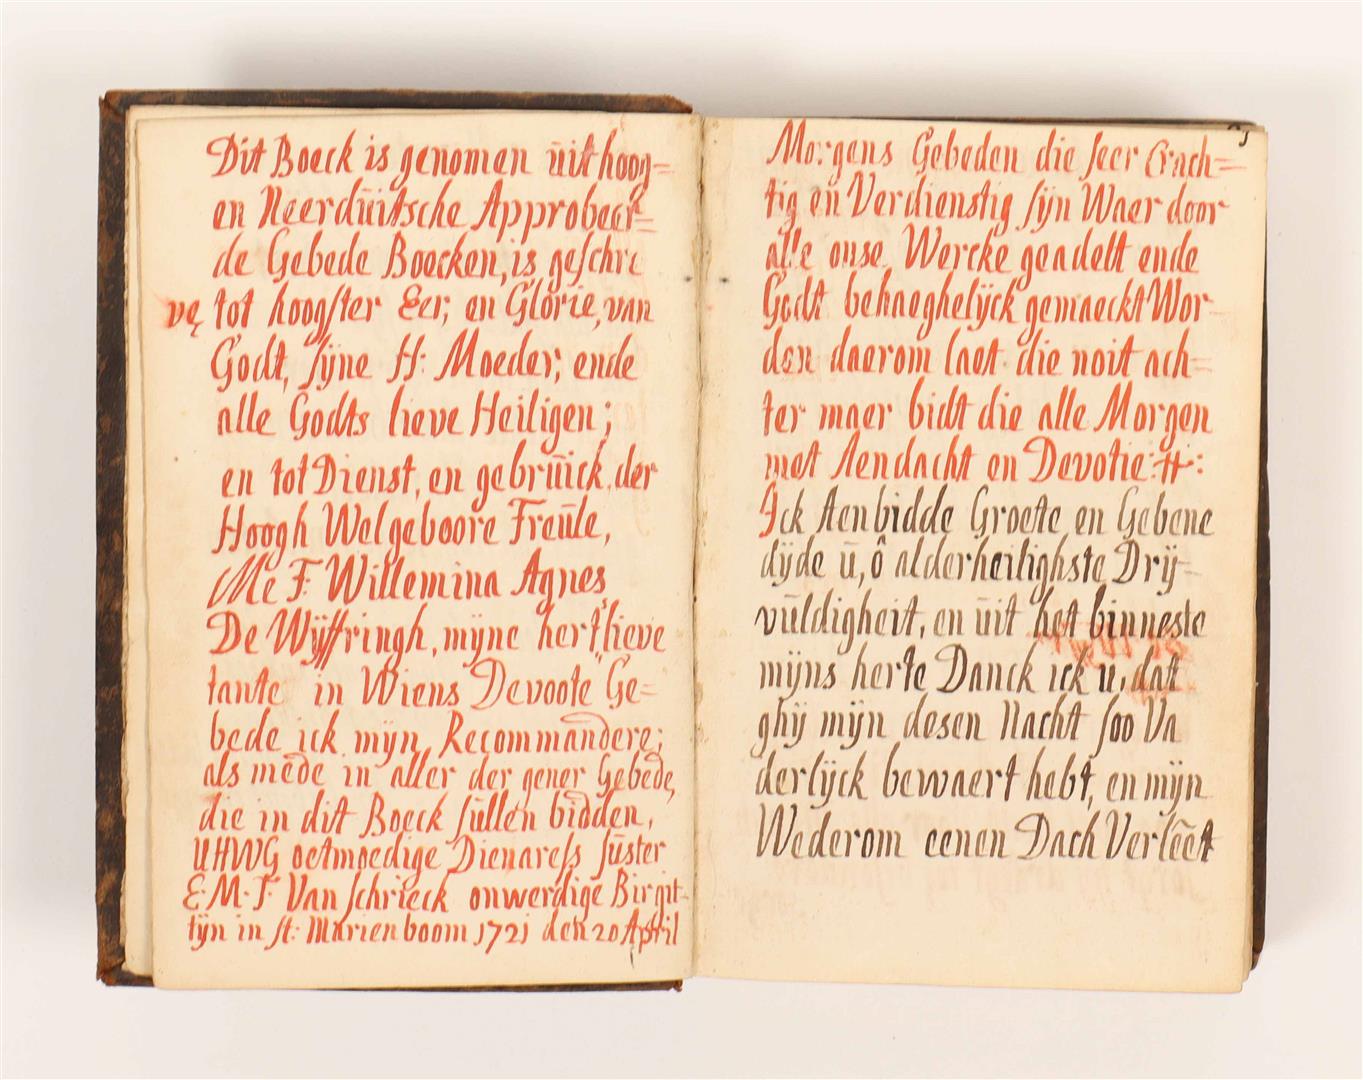 Dit Boeck is genomen ŭit hoog=
en Neerdŭitsche Approbeer=
de Gebede Boecken, is geschre
ve, tot hoogster Eer; en Glorie, van
Godt, sijne H: Moeder; ende
alle Godts lieve Heiligen;
en tot Dienst, en gebrŭick, der
Hoogh Welgeboore Freŭle,
Me F: Willemina Agnes
De Wijffringh, mijne hert's lieve
tante in Wiens Devoote Ge=
bede ick mijn Recommandere;
als mede in aller der gener Gebede,
die in dit Boeck sŭllen bidden,
UHWG oetmoedige Dienaress sŭster
E. M. F. Van schrieck onwerdige Birgit-
tijn in st: Marienboom 1721 den 20 April
Morgens Gebeden die seer Crach=
tig en Verdienstig sijn Waer door
alle onse Wercke geadelt ende
Godt behaeghelijck gemaeckt Wor-
den daerom laet die noit ach=
ter maer bidt die alle Morgen
met Aendacht en Devotie:#:
Ick Aenbidde Groete en Gebene
dijde ŭ, ô alderheilighste Drij-
vŭldigheit, en ŭit het binneste
mijns herte Danck ick u, dat
ghij mijn desen Nacht soo Va
derlijck bewaert hebt, en mijn
Wederom eenen Dach Verlēēt